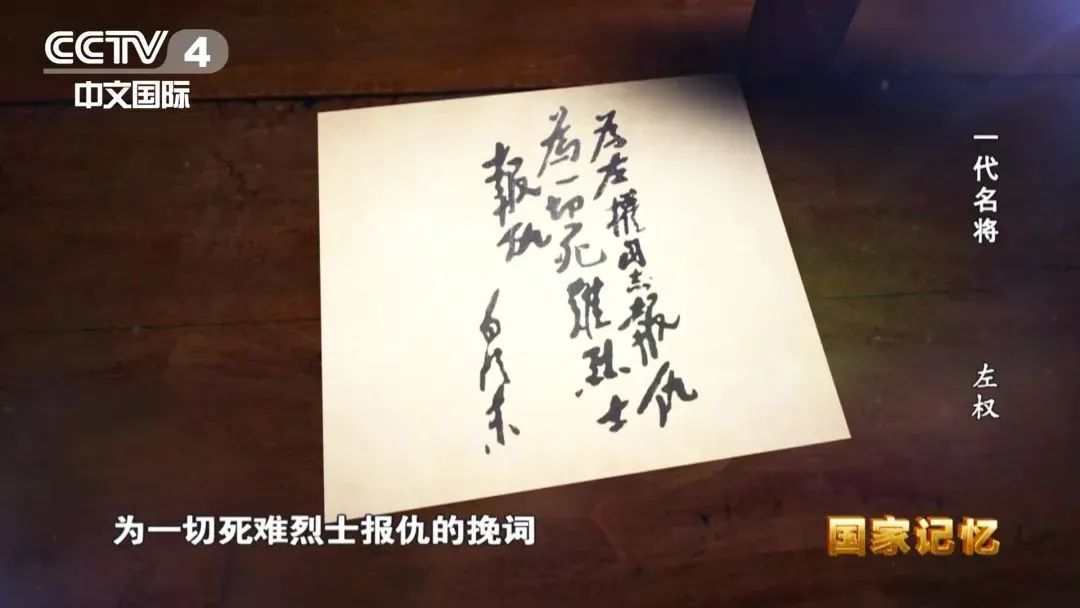 CCTV 4
中文国际
一代名将
左权
为左權同志報仇
為一切死難烈士
報仇
毛泽东
为一切死难烈士报仇的挽词
国家记忆